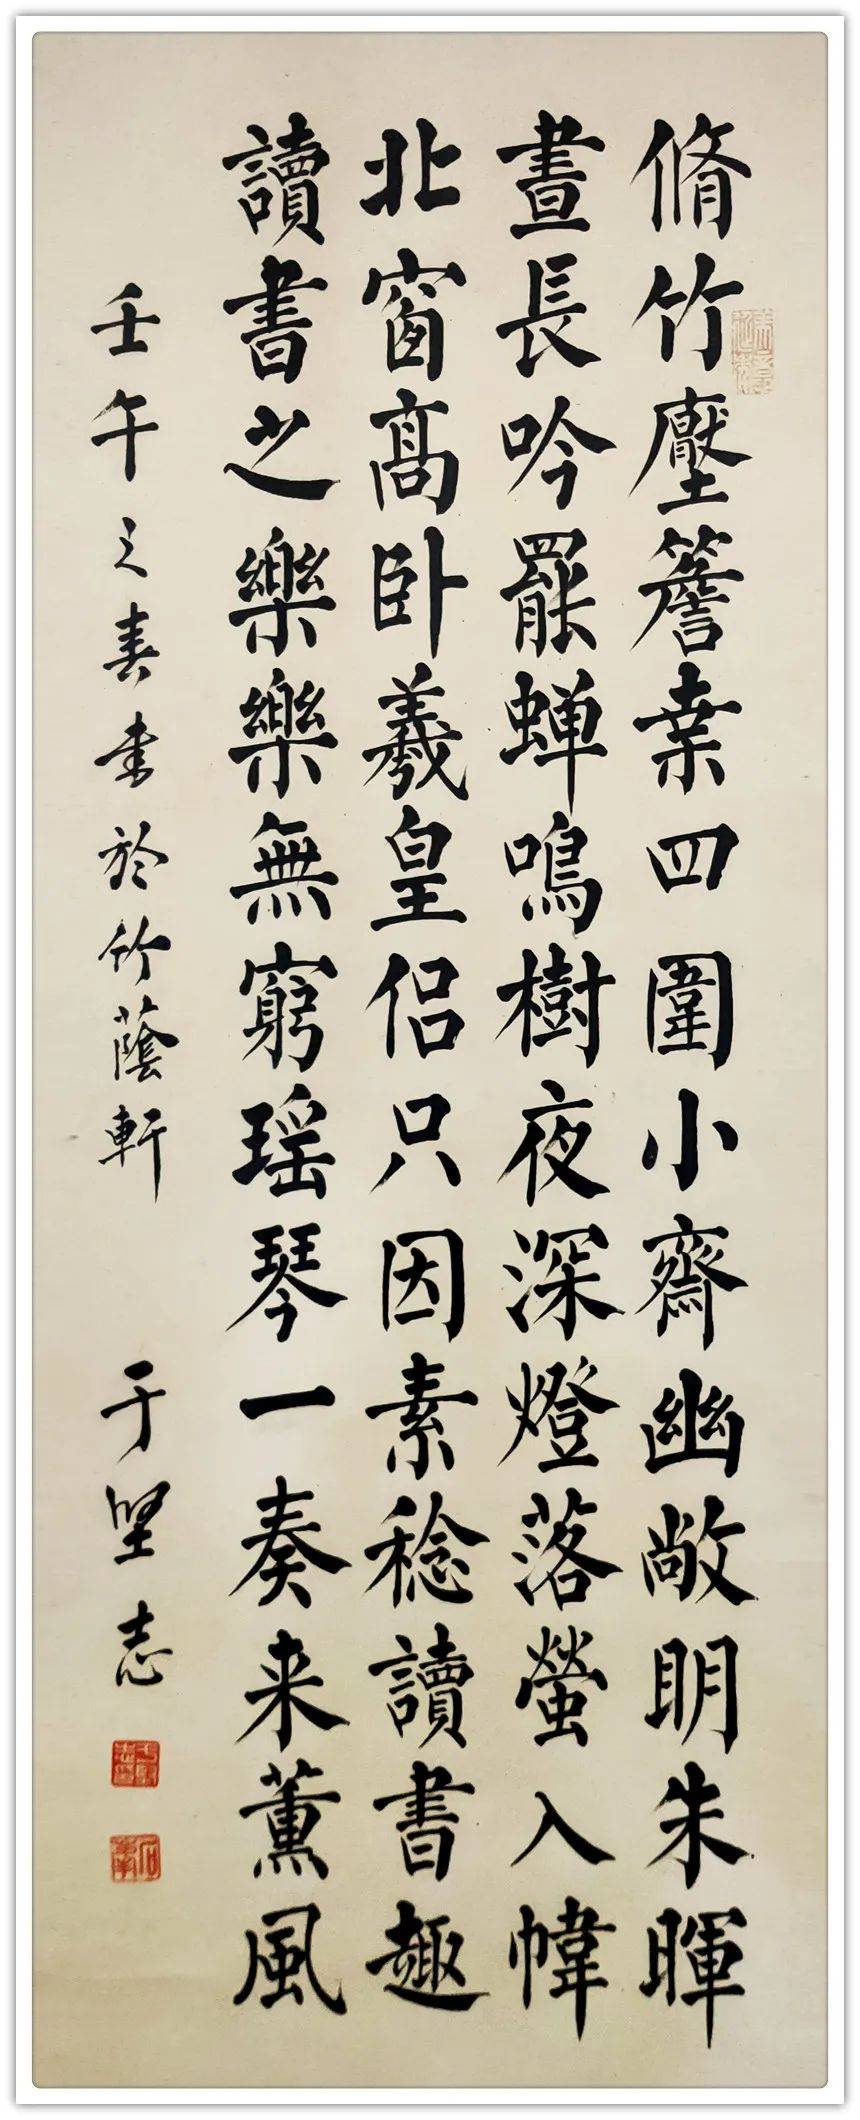 脩竹壓簷桒四圍小齋幽敞明朱暉
晝長吟罷蝉鳴樹夜深燈落螢入幃
北窗髙卧羲皇侣只因素稔讀書趣
讀書之樂樂無窮瑶琴一奏来薰風
壬午之春書於竹蔭軒 于坚志